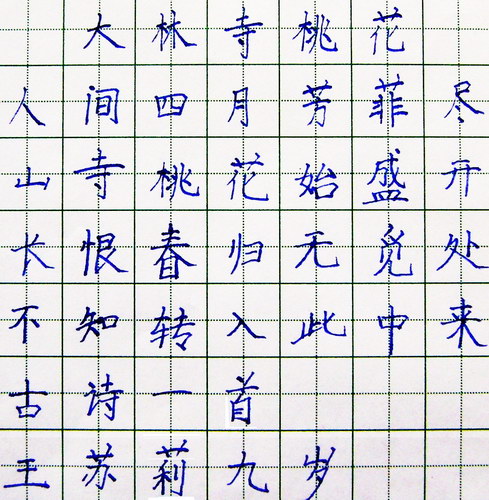 大林寺桃花
人间四月芳菲尽
山寺桃花始盛开
长恨春归无觅处
不知转入此中来
古诗一首
王苏莉九岁